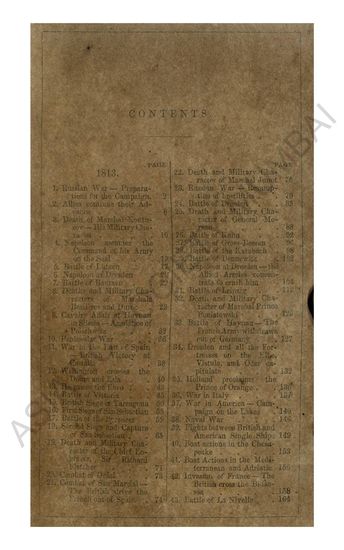 CONTENTS
PAGE
1813.
1. Russian War — Prepara-
tions for the Campaign. 2
2. Allies continue their Ad-
vance 6
3. Death of Marshal
— His Military Cha-
racter 10
4. Napoleon assumes the
Command of his Army
on the
5. Battle of Lutzen
6. Napoleon at Dresden
7. Battle of Bautzen 22
8. Death and Military Cha-
racters of Marshals
Bessieres and Duroc
9. Cavalry Affair at
in Silesia — Armistice of
10. Peninsular War
11. War in the East of Spain
— British Victory of
12. Wellington crosses the
Douro and Esla 40
13. He passes the Ebro
14. Battle of Vittoria
15. British Siege of Tarragona
16. First Siege of San Sebastian
17. Battle of the Pyrenees 59
18. Second Siege and Capture
of San Sebastian 65
19. Death and Military Cha-
racter of the Chief En-
gineer, Sir Richard
Fletcher 71
20. Combat of
21. Combat of San Marzial —
The British drive the
French out of Spain 74
PAGE
22. Death and Military Cha-
racter of Marshal Junot 76
23. Russian War —
of Hostilities 79
24. Battle of Dresden 83
25. Death and Military Cha-
racter of General Mo-
reau 88
26. Battle of Kulm 92
27. Battle of Gross-Beeren 96
28. Battle of the Katzbach 98
29. Battle of Dennewitz 102
30. Napoleon at Dresden — the
Allied Armies concen-
trate to crush him 104
31. Battle of Leipsig 112
32. Death and Military Cha-
racter of Marshal Prince
Poniatowski 125
33. Battle of Haynau — The
French Army withdrawn
out of Germany 127
34. Dresden and all the For-
tresses on the Elbe,
Vistula, and Oder ca-
pitulate 132
35. Holland proclaims the
Prince of Orange
36. War in Italy
37. War in America — Cam-
paign on the Lakes 140
38. Naval War 146
39. Fights between British and
American Single Ships 149
40. Boat actions in the Chesa-
peake 153
41. Boat Actions in the Medi-
terranean and Adriatic 156
42. Invasion of France — The
British cross the Bidas-
soa 158
43. Battle of La Nivelle 164